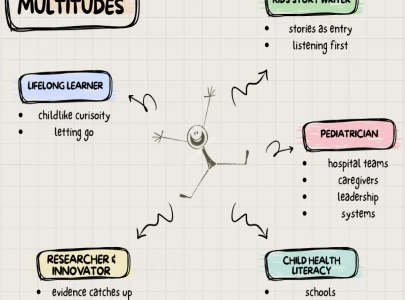 MULTITUDES
KID'S STORY WRITER
stories as entry
listening first
LIFELONG LEARNER
childlike curiosity
letting go
PEDIATRICIAN
hospital teams
caregivers
leadership
systems
RESEARCHER &
INNOVATOR
evidence catches up
CHILD HEALTH
LITERACY
schools